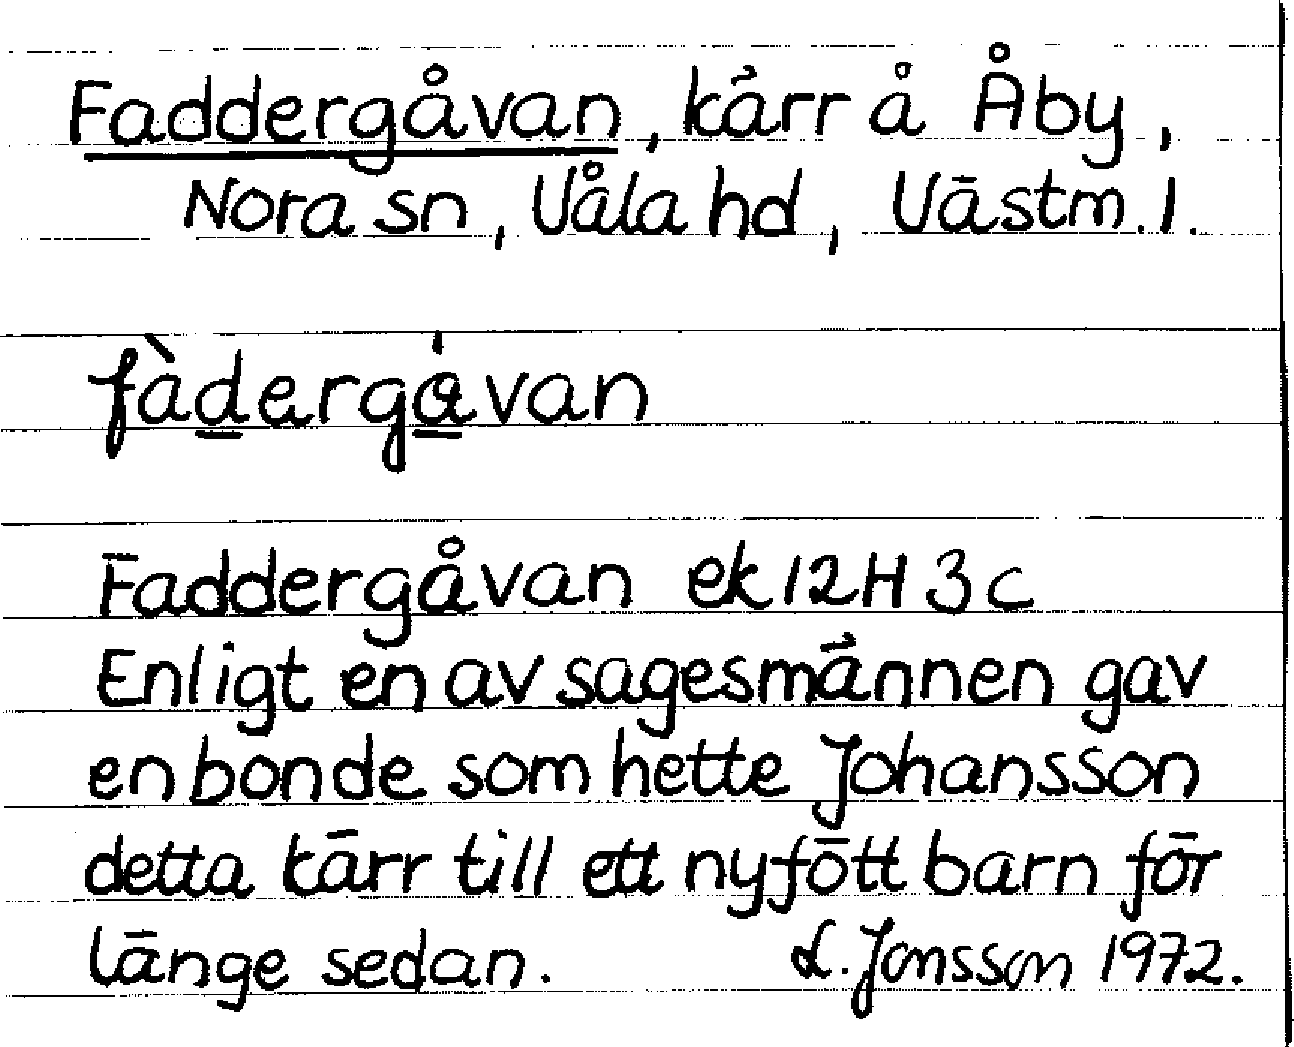 Faddergåvan, kärr å Åby,
Nora sn, Våla hd, Västm. l.
fàdergåvan
Faddergåvan ek 12H 3c
Enligt en av sagesmännen gav
en bonde som hette Johansson
detta kärr till ett nyfött barn för
länge sedan. L. Jonsson 1972.